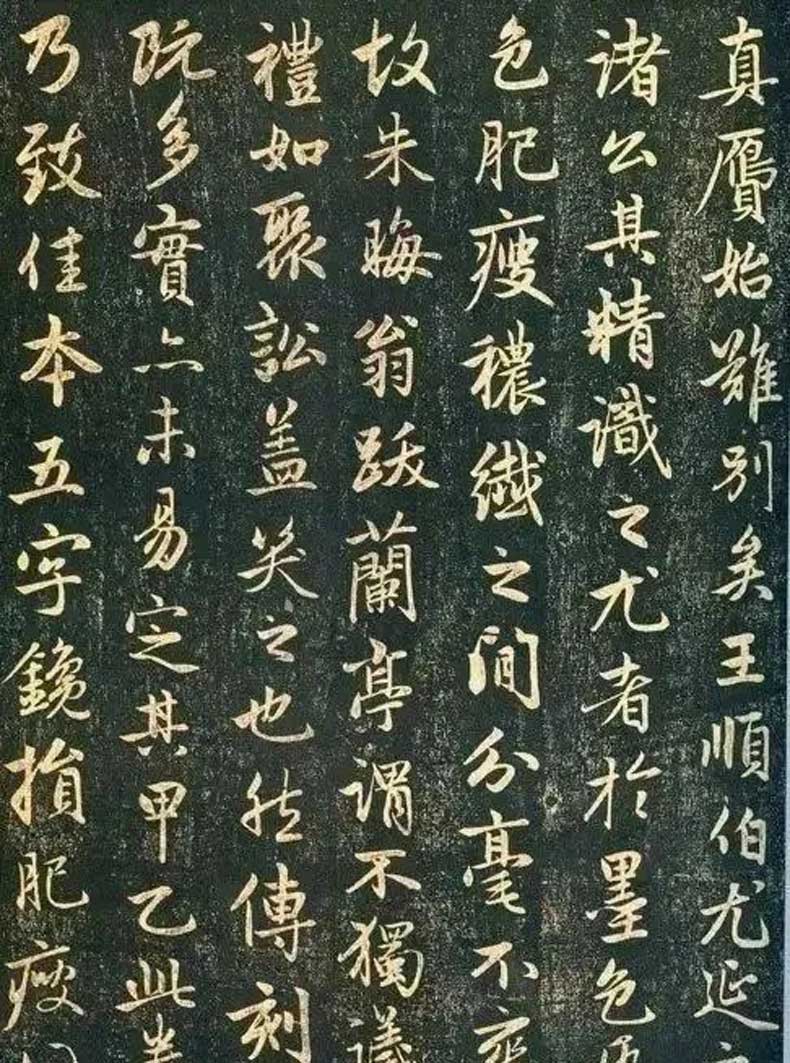 真贋始難別矣王順伯尤延之
諸公其精識之尤者於墨色
色肥瘦穠纖之間分毫不爽
故朱晦翁跋蘭亭謂不獨議
禮如聚訟蓋笑之也然傳刻
既多實亦未易定其甲乙此卷
乃致佳本五字鑱損肥瘦